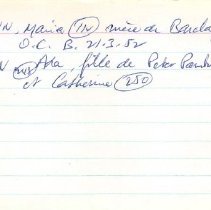 N, Maria (IN) mère de Barcla
O.C. B. 21-3-52
N Ada, fille de Peter
et Catherine (250)